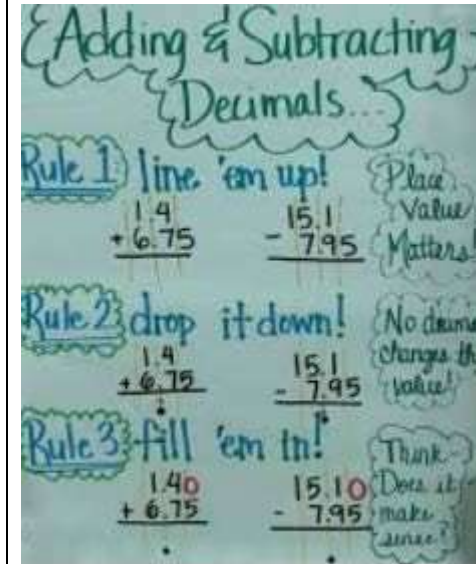 Adding & Subtracting
Decimals...
Rule 1 line 'em up!
1.4
+ 6.75
15.1
- 7.95
Place
Value
Matters!
Rule 2 drop it down!
1.4
+ 6.75
.
15.1
- 7.95
.
No
changes
value!
Rule 3 fill 'em in!
1.40
+ 6.75
.
15.10
- 7.95
.
Think
Does it
make
sense?